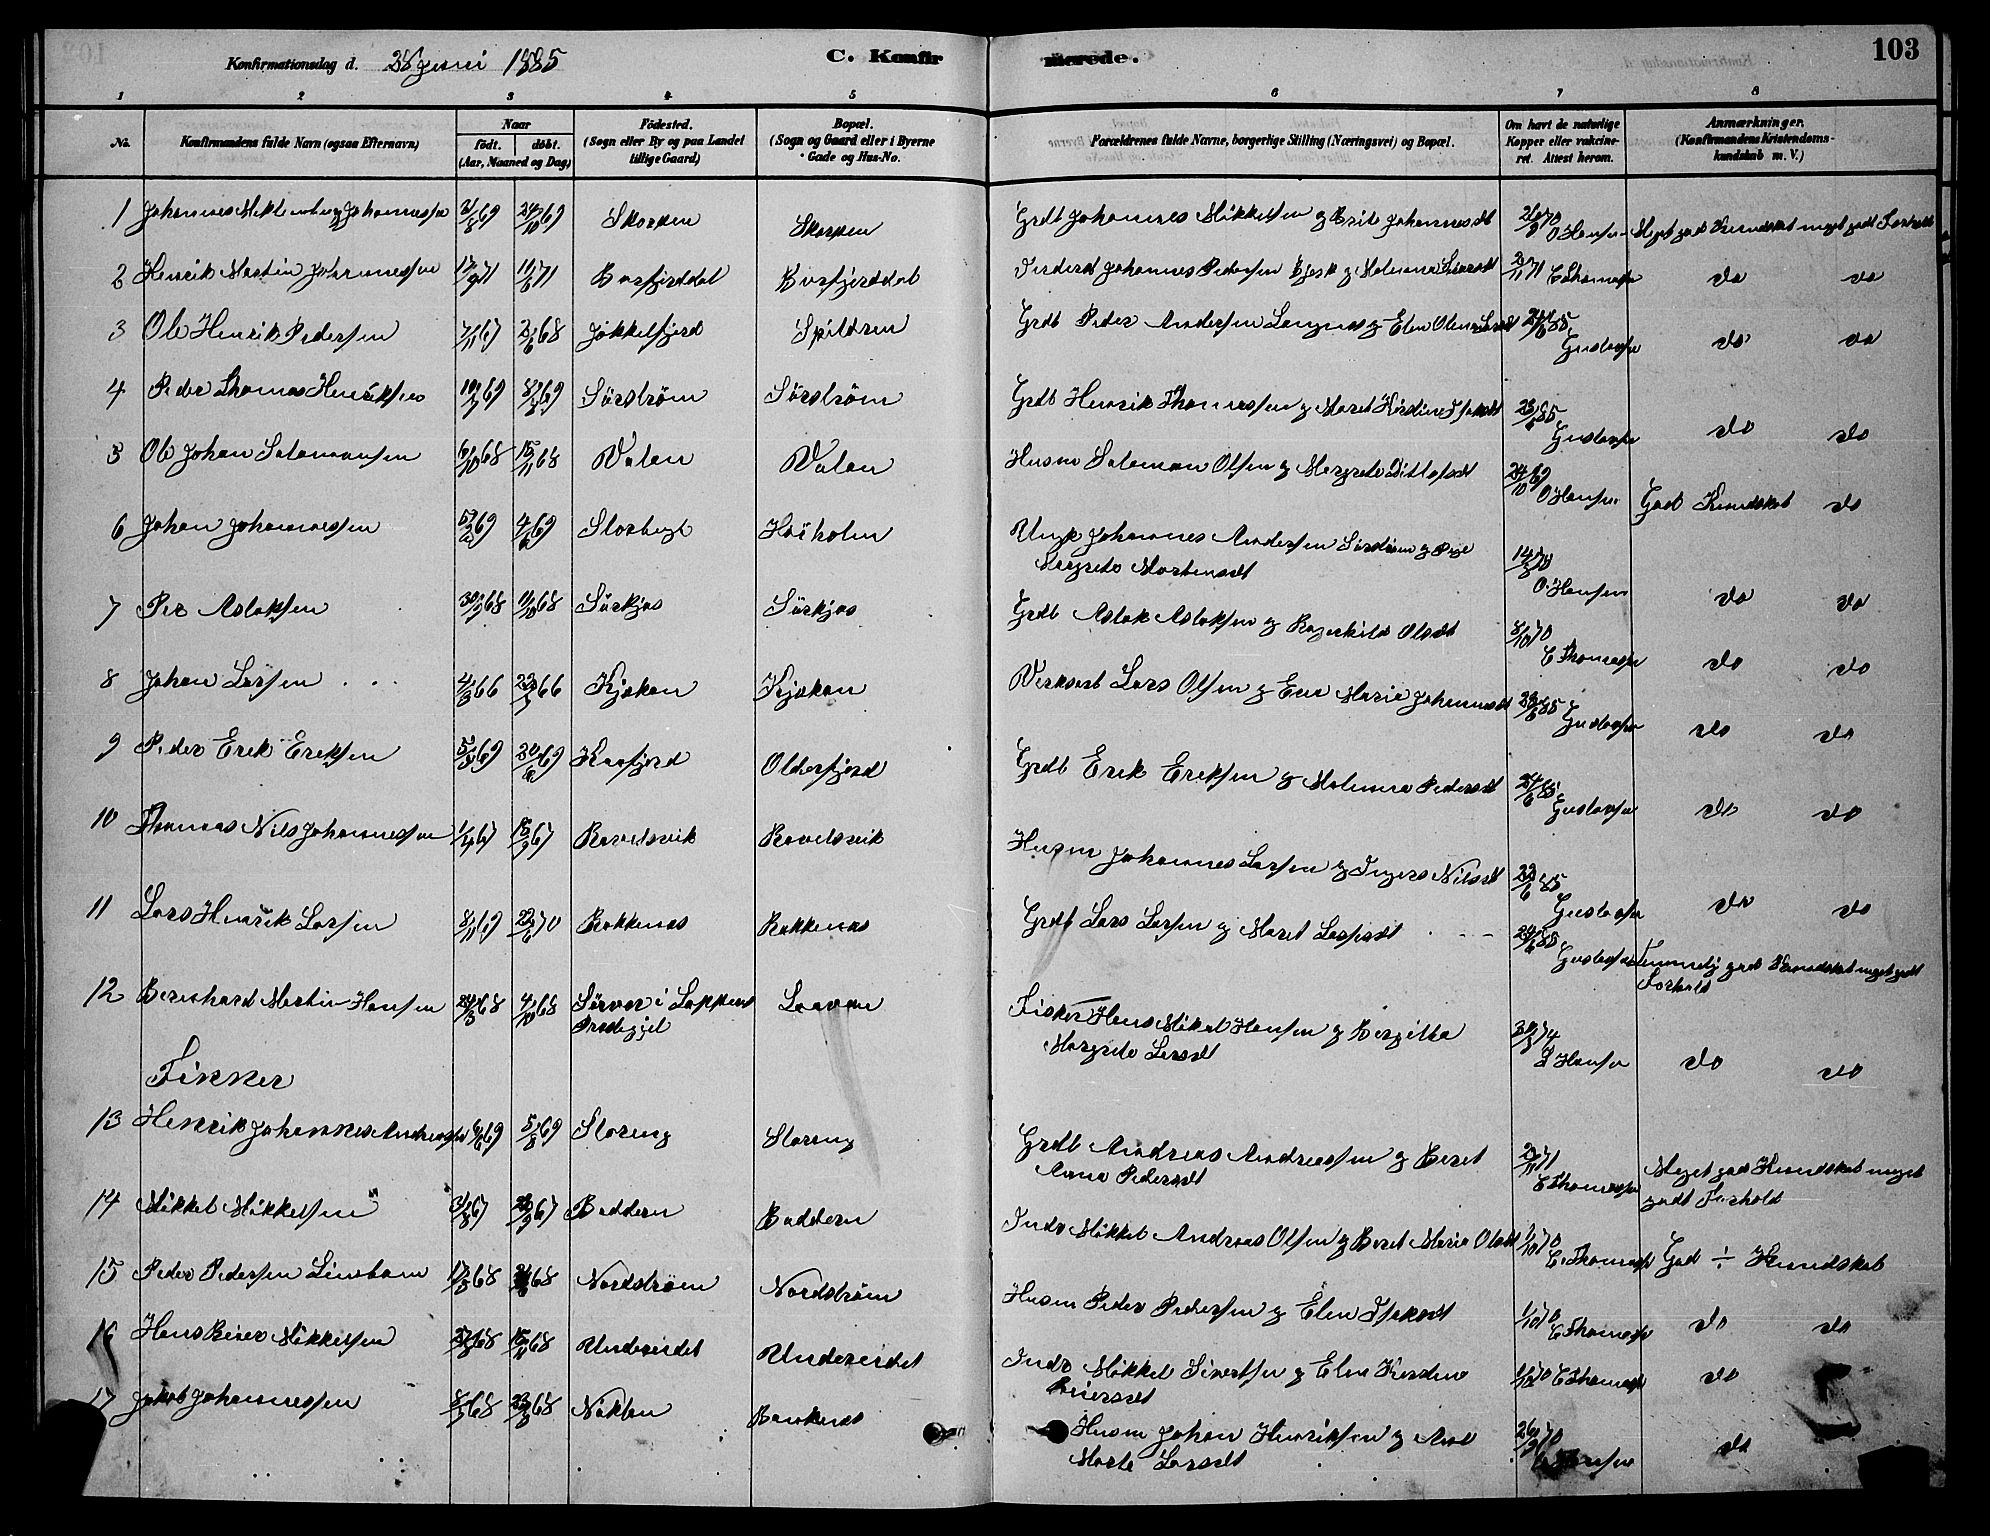 Konfirmationsdag d. 28 Juni 1885 C. Konfirmerede. 103
1 2 3 4 5 6 7 8
No. Konfirmandens fulde Navn (ogsaa Efternavn) Naar født. døbt. (Aar, Maaned og Dag) Fødested. (Sogn eller By og paa Landet tillige Gaard) Bopæl. (Sogn og Gaard eller i Byerne Gade og Hus-No. Forældrenes fulde Navne, borgerlige Stilling (Næringsvei) og Bopæl. Om havt de naturlige Kopper eller vakcineret. Attest herom. Anmærkninger. (Konfirmandens Kristendomskundskab m. V.)
1 Johannes Johannessen 2/8 69 24/10 69 Skorpen Skorpen Grdb Johannes Mikkelsen g Brite Johannesdt 26/9 70 O Hansen Meget god Kundskab meget godt Forhold
2 Henrik Martin Johannessen 17/2 71 11/6 71 Burfjorddal Burfjorddal Johannes Pedersen g Malene 2/11 71 C Thomassen do do
3 Ole Henrik Pedersen 7/11 67 2/6 68 Jøkkelfjord Spildren Grdb Peder Andersen g Elen 24/6 85 Gustavsen do do
4 Peder Thomas Henriksen 10/7 69 8/8 69 Sørstrøm Sørstrøm Grdb Henrik Thomassen g Maret Kirstine Isaksdt 23/6 85 Gustavsen do do
5 Ole Johan Salamonsen 6/10 68 15/11 68 Valan Valan Husm Salamon Olsen g Margrete 24/10 69 O Hansen God Kundskab do
6 Johan Johannessen 5/2 69 4/6 69 Storbugt Høiholm Ungk Johannes Andersen Sørstrøm g Pige
Margrete Mortensdt 14/3 70 O Hansen do do
7 Per Aslaksen 30/9 68 11/10 68 Sørkjos Sørkjos Grdb Aslak Aslaksen g Ragnhild Olsdt 2/10 70 C Thomassen do do
8 Johan Larsen 4/3 66 22/7 66 Kjækan Kjækan Lars Olsen g Ellen Maria Johannesdt 28/6 85 Gustavsen do do
9 Peder Erik Eriksen 5/5 69 20/6 69 Kaafjord Olderfjord Grdb Erik Eriksen g Malene Pedersdt 24/6 85 Gustavsen do do
10 Thomas Nils Johannessen 1/4 67 15/9 67 Ravelsvik Ravelsvik Husm Johannes Larsen g Ingers Nilsdt 22/6 85 Gustavsen do do
11 Lars Henrik Larsen 8/11 69 22/6 70 Rakkenes Rakkenes Grdb Lars Larsen g Maret Larsdt 24/6 85 Gustavsen Temmelig god Kundskab meget godt
Forhold
12 Bernhard Martin Hansen 24/3 68 4/10 68 Sørvær i Loppens
Prestegjel Laavan Fisker Hans Mikal Hansen g Bergitta
Margrete Larsdt 30/8 74 L Hansen do do
Finner
13 Henrik Johannes Andreassen 6/6 69 5/8 69 Storeng Storeng Grdb Andreas Andreassen g Beret
Anna Pedersdt 2/11 71 C Thomassen Meget god Kundskab meget
godt Forhold
14 Mikkel Mikkelsen 31/8 67 22/9 67 Baddern Baddern Indr Mikkel Andreas Olsen g Beret Maria Olsdt 1/10 70 C Thomassen God ÷ Kundskab
15 Peder Pedersen 17/3 68 68 Nordstrøm Nordstrøm Husm Peder Pedersen g Elen Isaksdt 1/10 70 C Thomassen do do
16 Hans Beier Mikkelsen 27/8 68 15/11 68 Undereidet Undereidet Indr Mikkel Sivertsen g Elen Kirstine
Beiersdt 1/10 70 C Thomassen do
17 Jakob Johannessen 8/7 68 23/8 68 Nøklan Husm Johan Henriksen g
Marte Larsdt 26/9 70 O Hansen do